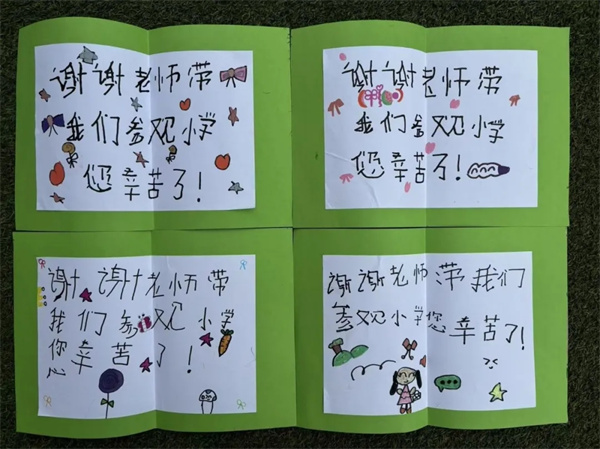 谢谢老师带
我们参观小学
您辛苦了!
谢谢老师带
我们参观小学
您辛苦了!
谢谢老师带
我们参观小学
您辛苦了!
谢谢老师带我们
参观小学您辛苦了!